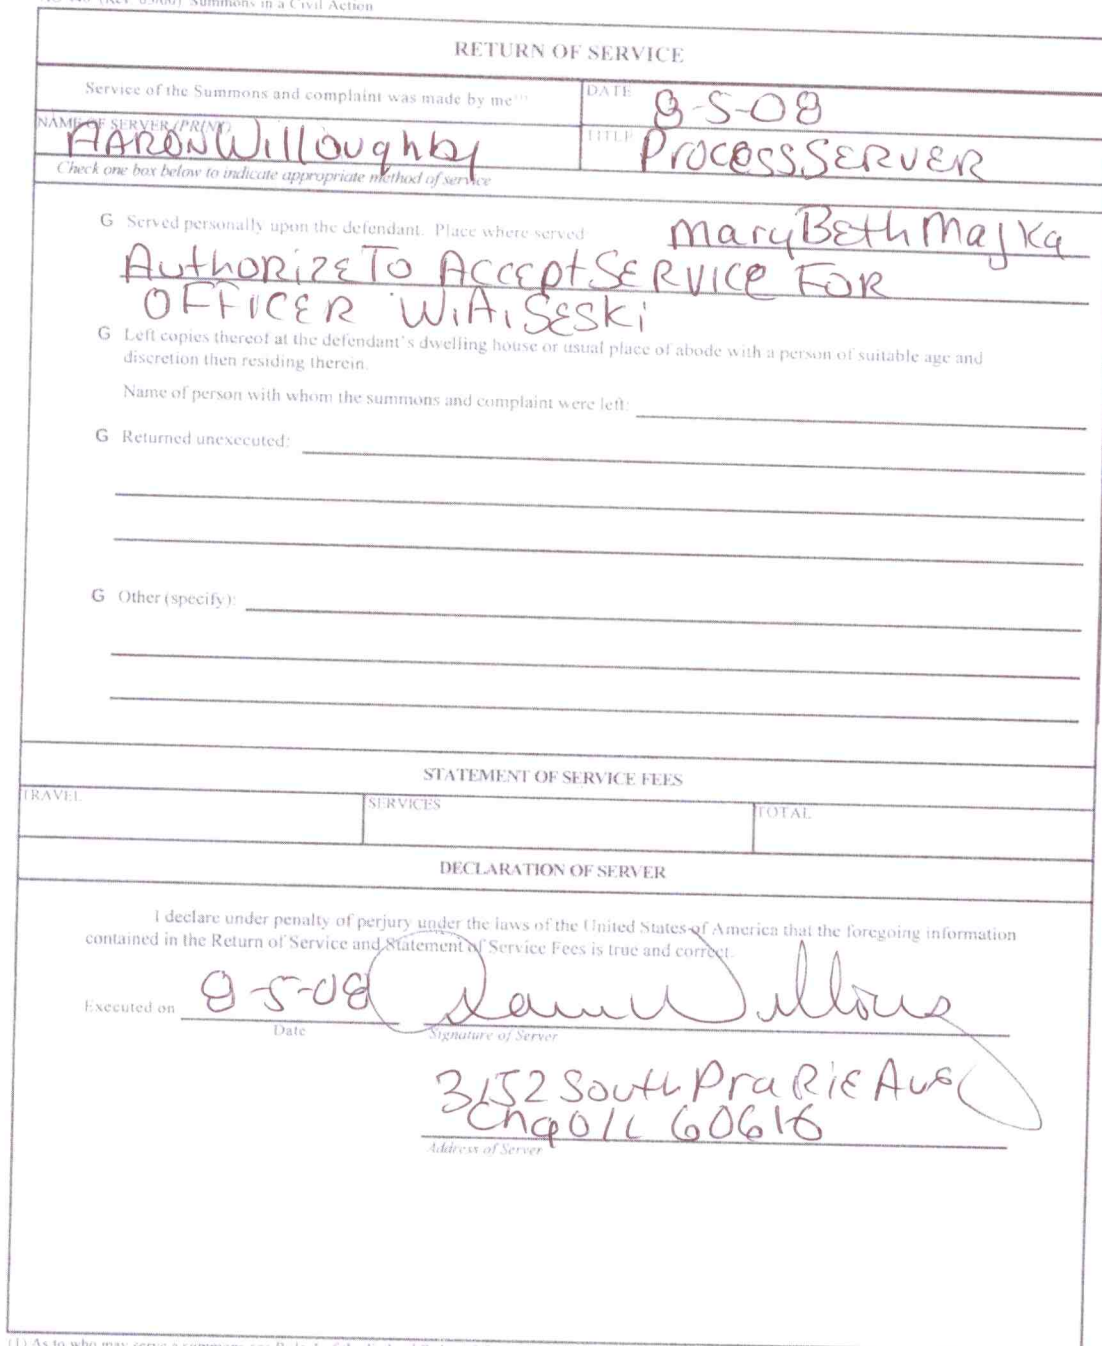 Summons in a Civil Action
RETURN OF SERVICE
Service of the Summons and complaint was made by me(1)
DATE
8-5-08
NAME OF SERVER (PRINT)
AARON Willoughby
TITLE
PROCESS SERVER
Check one box below to indicate appropriate method of service
G Served personally upon the defendant. Place where served: Mary BEth Majka
AuthORIZE To ACCEpt SERVICE FOR
OFFICER W.A. SESKi
G Left copies thereof at the defendant's dwelling house or usual place of abode with a person of suitable age and
discretion then residing therein.
Name of person with whom the summons and complaint were left:
G Returned unexecuted:
G Other (specify):
STATEMENT OF SERVICE FEES
TRAVEL
SERVICES
TOTAL
DECLARATION OF SERVER
I declare under penalty of perjury under the laws of the United States of America that the foregoing information
contained in the Return of Service and Statement of Service Fees is true and correct.
Executed on 8-5-08
Date
Signature of Server
3152 South PraRiE AvE
Chgo IL 60616
Address of Server
(1) As to who may serve a summons see Rule 4 of the